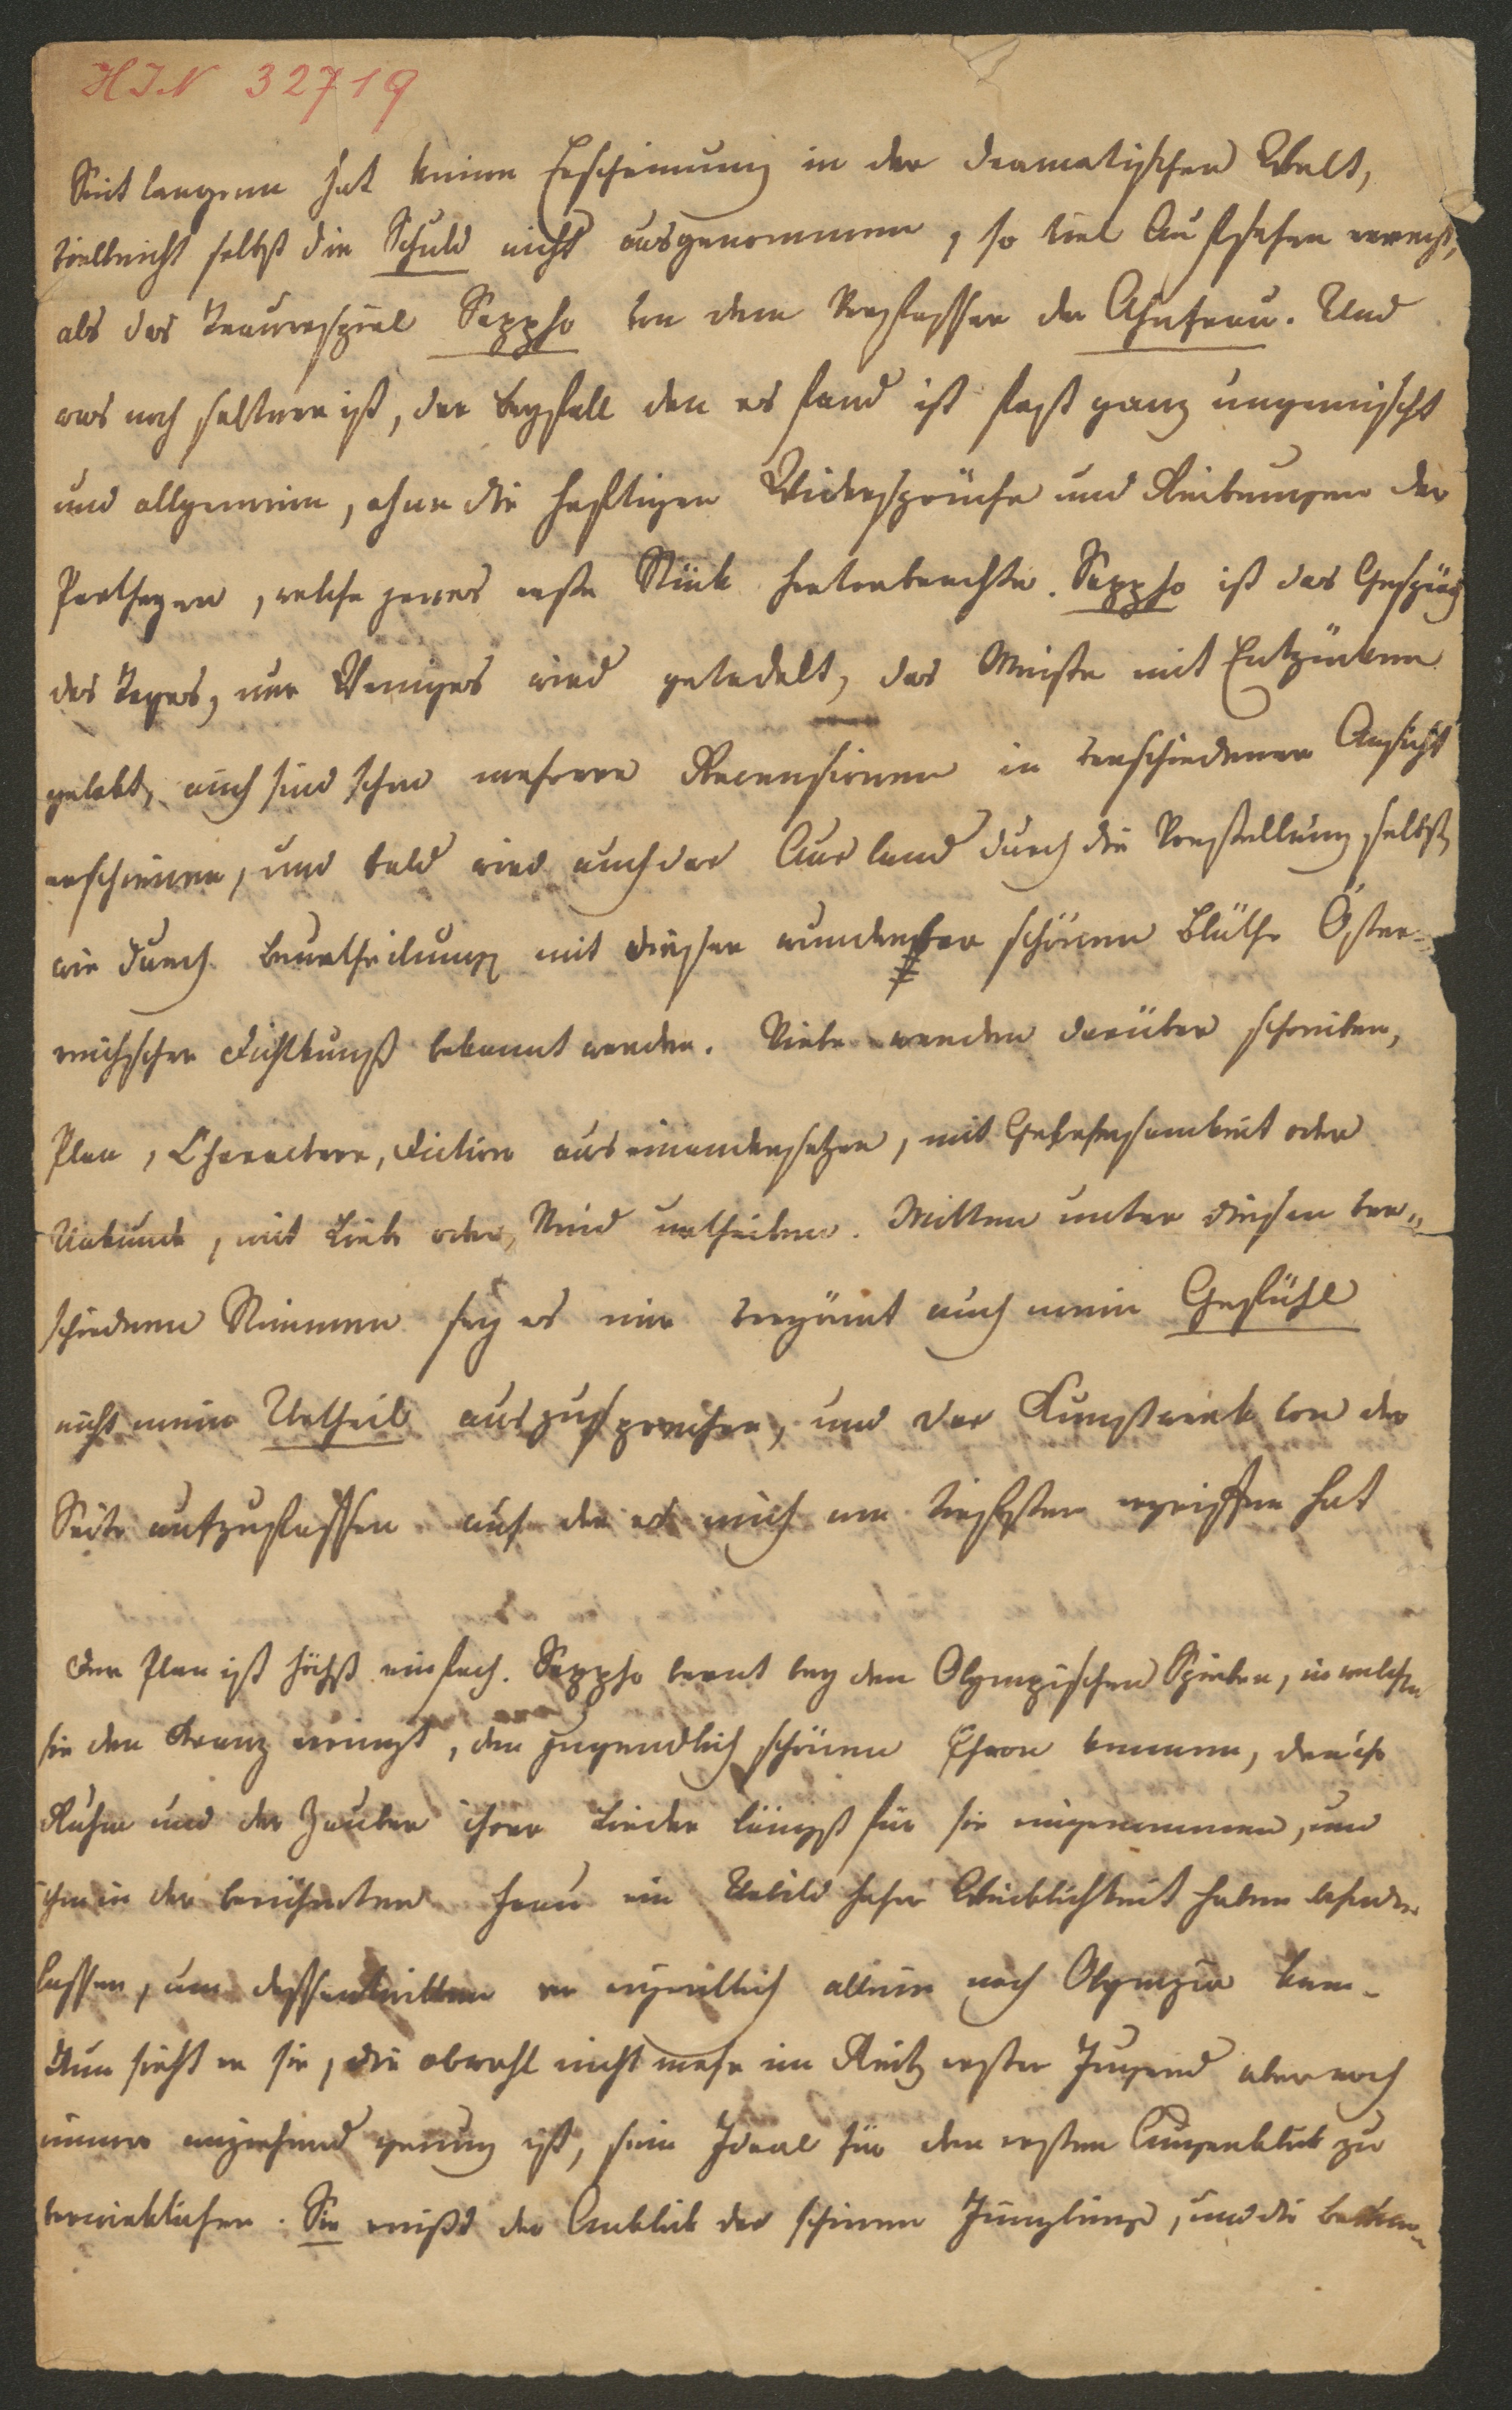 HIN 32719
Seit langem hat keine Erscheinung in der dramatischen Welt,
vielleicht selbst die Schuld nicht ausgenommen, so viel Aufsehen erregt,
als das Trauerspiel Sappho von dem Verfasser der Ahnfrau. Und
was noch seltner ist, der Beyfall den es fand ist fast ganz ungemischt
und allgemein, ohne die heftigen Widersprüche und Reibungen der
Partheyen, welche jenes erste Stück hervorbrachte. Sappho ist das Gespräch
des Tages, nur Weniges wird getadelt, das Meiste mit Entzücken
gelobt, auch sind schon mehrere Recensionen in verschiedener Ansicht
erschienen, und bald wird auch das Ausland durch die Vorstellung selbst,
wie durch Beurtheilung mit dieser wunderschönen Blüthe Öster-
reichscher Dichtkunst bekannt werden. Viele werden darüber schreiben,
Plan, Charactere, Diction auseinandersetzen, mit Gelehrsamkeit oder
Unkunde, mit Liebe oder Neid urtheilen. Mitten unter diesen ver-
schiednen Stimmen sey es mir vergönnt auch mein Gefühl
nicht mein Urtheil auszusprechen, und das Kunstwerk von der
Seite aufzufassen auf der es mich am tiefsten ergriffen hat
Der Plan ist höchst einfach. Sappho lernt bey den Olympischen Spielen, in welchen
sie den Kranz erringt, den jugendlich schönen Phaon kennen, den ihr
Ruhm und der Zauber ihrer Lieder längst für sie eingenommen, und
ihn in der berühmten Frau ein Urbild hoher Weiblichkeit haben ahnden
lassen, um dessentwillen er eigentlich allein nach Olympia kam.
Nun sieht er sie, die obwohl nicht mehr im Reitz erster Jugend aber noch
immer anziehend genung ist, sein Ideal für den ersten Augenblick zu
verwirklichen. Sie reißt der Anblick des schönen Jünglings, und die